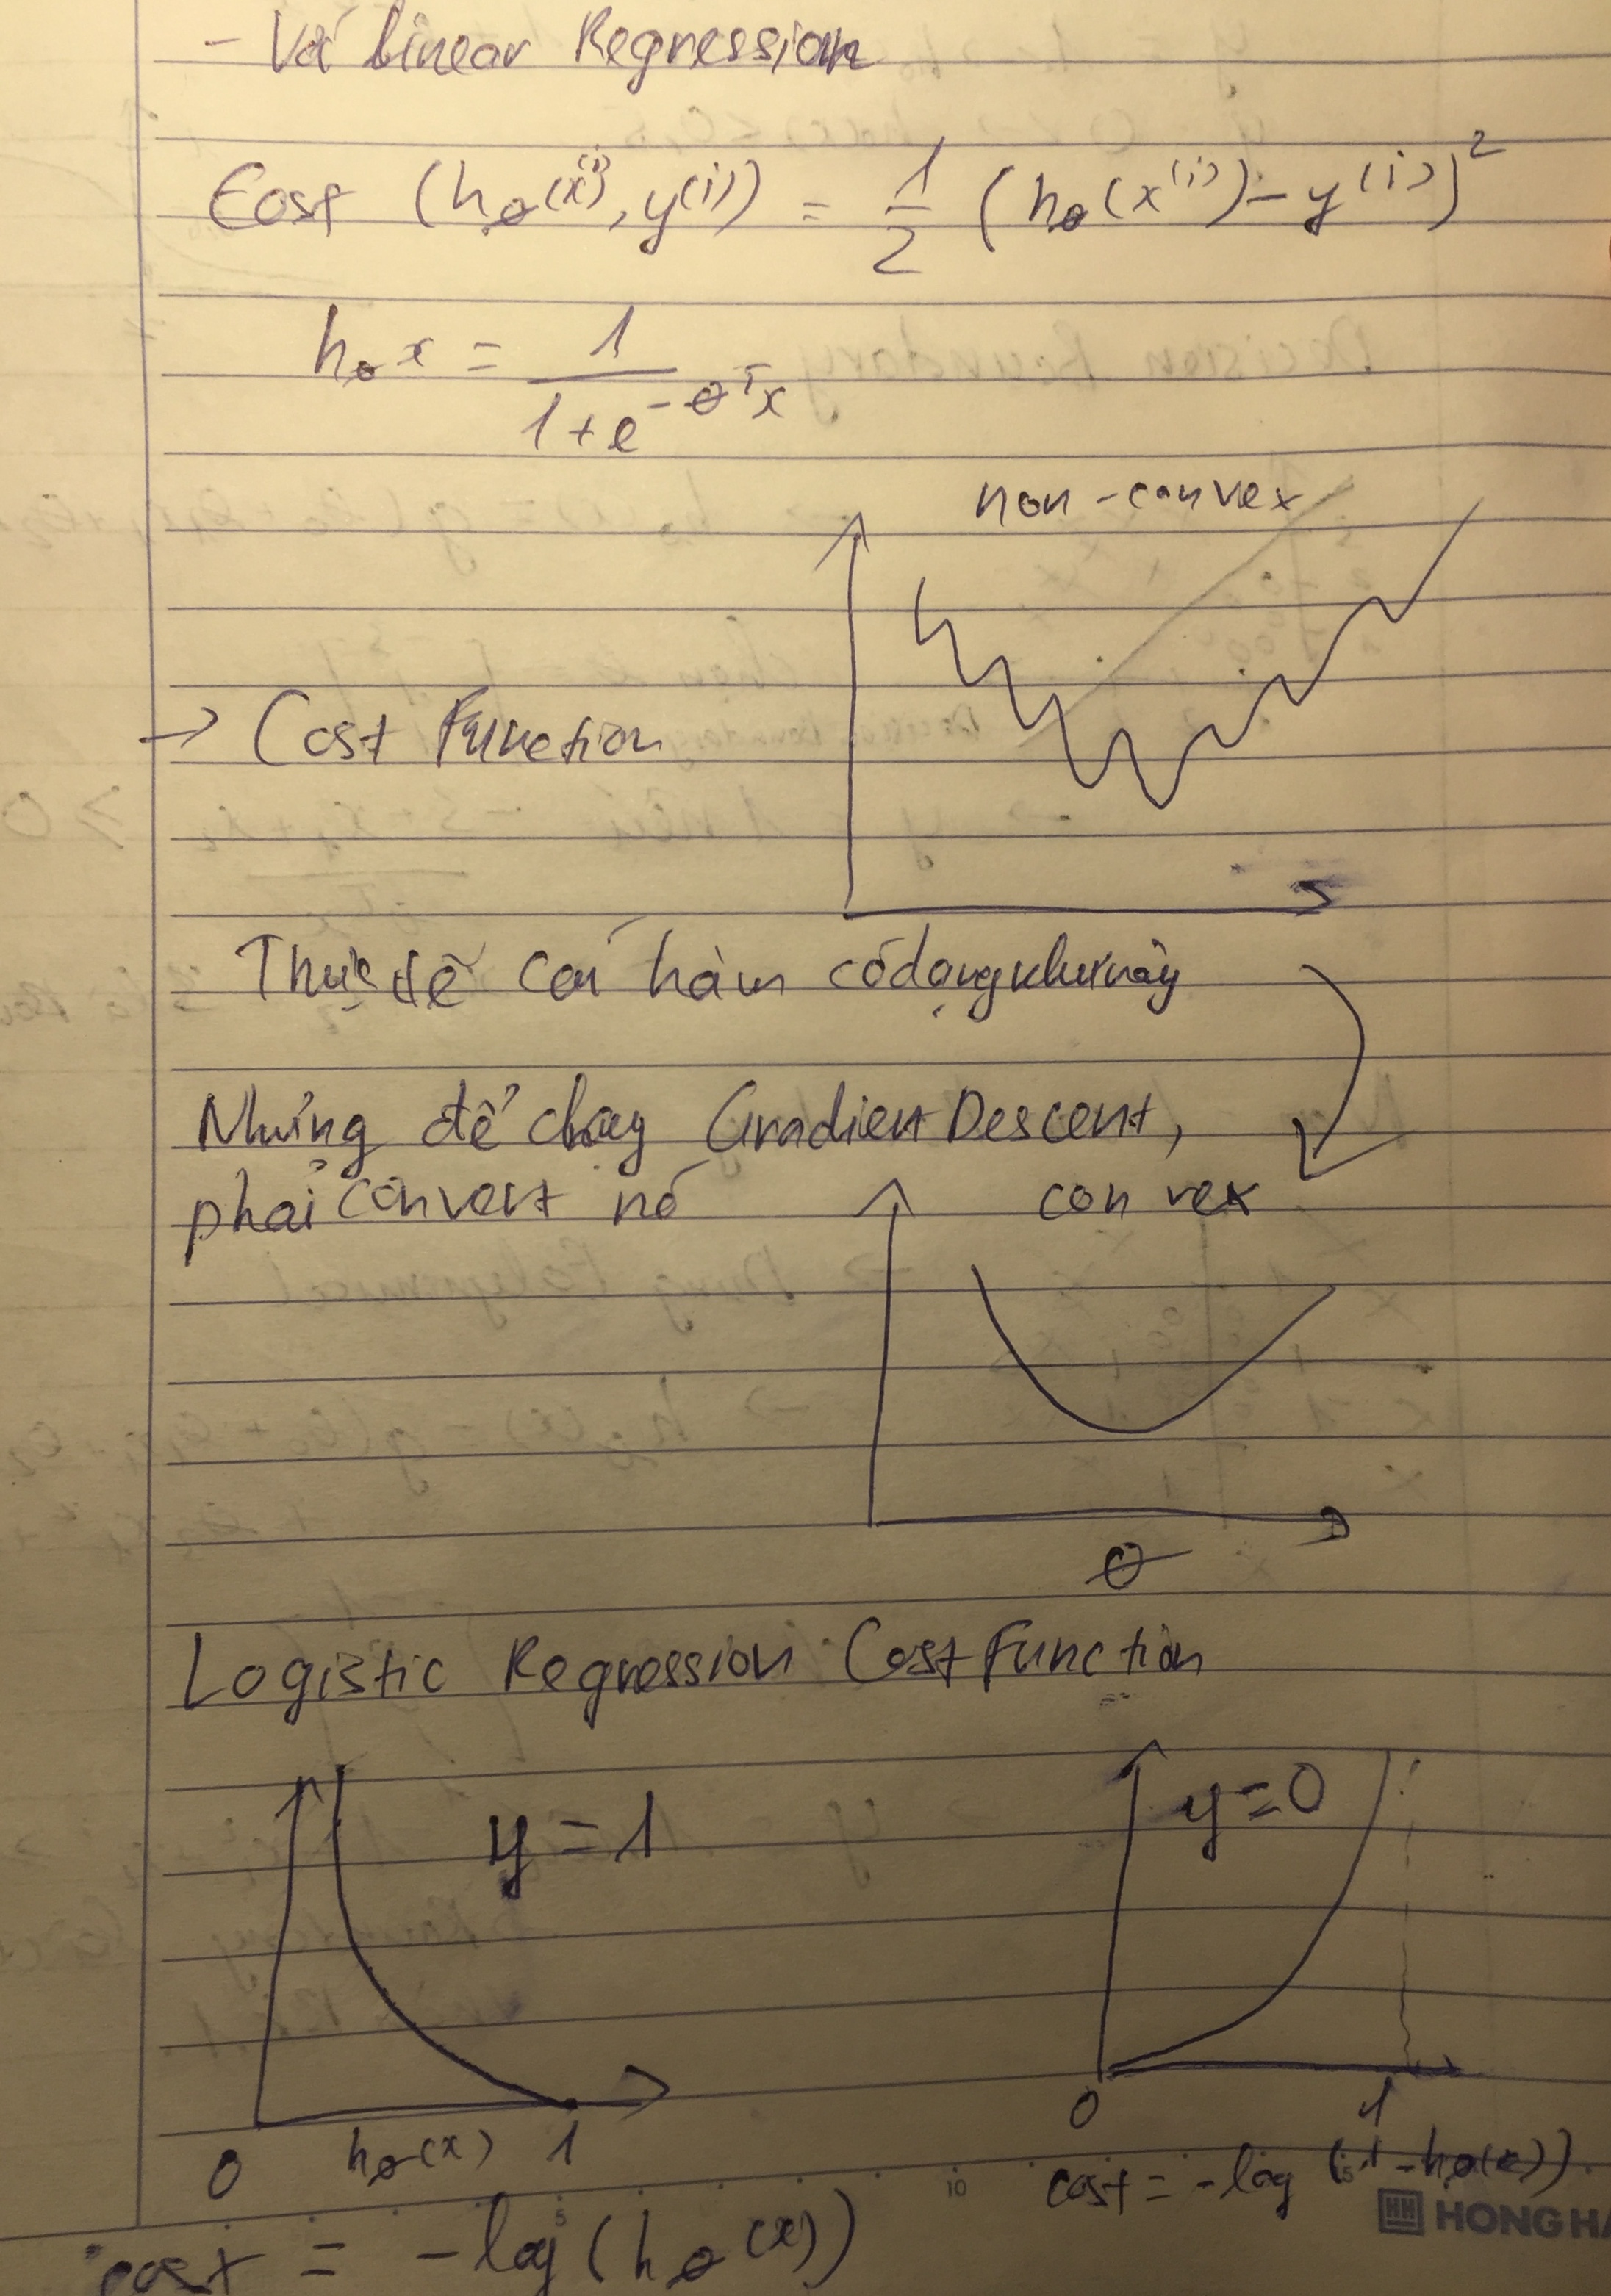 - Với Linear Regression
Cost (hθ(x⁽ⁱ⁾), y⁽ⁱ⁾) = 1/2 (hθ(x⁽ⁱ⁾) - y⁽ⁱ⁾)²
hθ x = 1/(1+e^(-θᵀx))
non-convex
→ Cost Function
Thực tế có hàm có dạng như này
Nhưng để chạy Gradient Descent,
phải convert nó
convex
θ
Logistic Regression Cost Function
y = 1
y = 0
0 hθ(x) 1
0 1
cost = -log(1-hθ(x))
cost = -log(hθ(x))
5 10 15
HH HONG HA